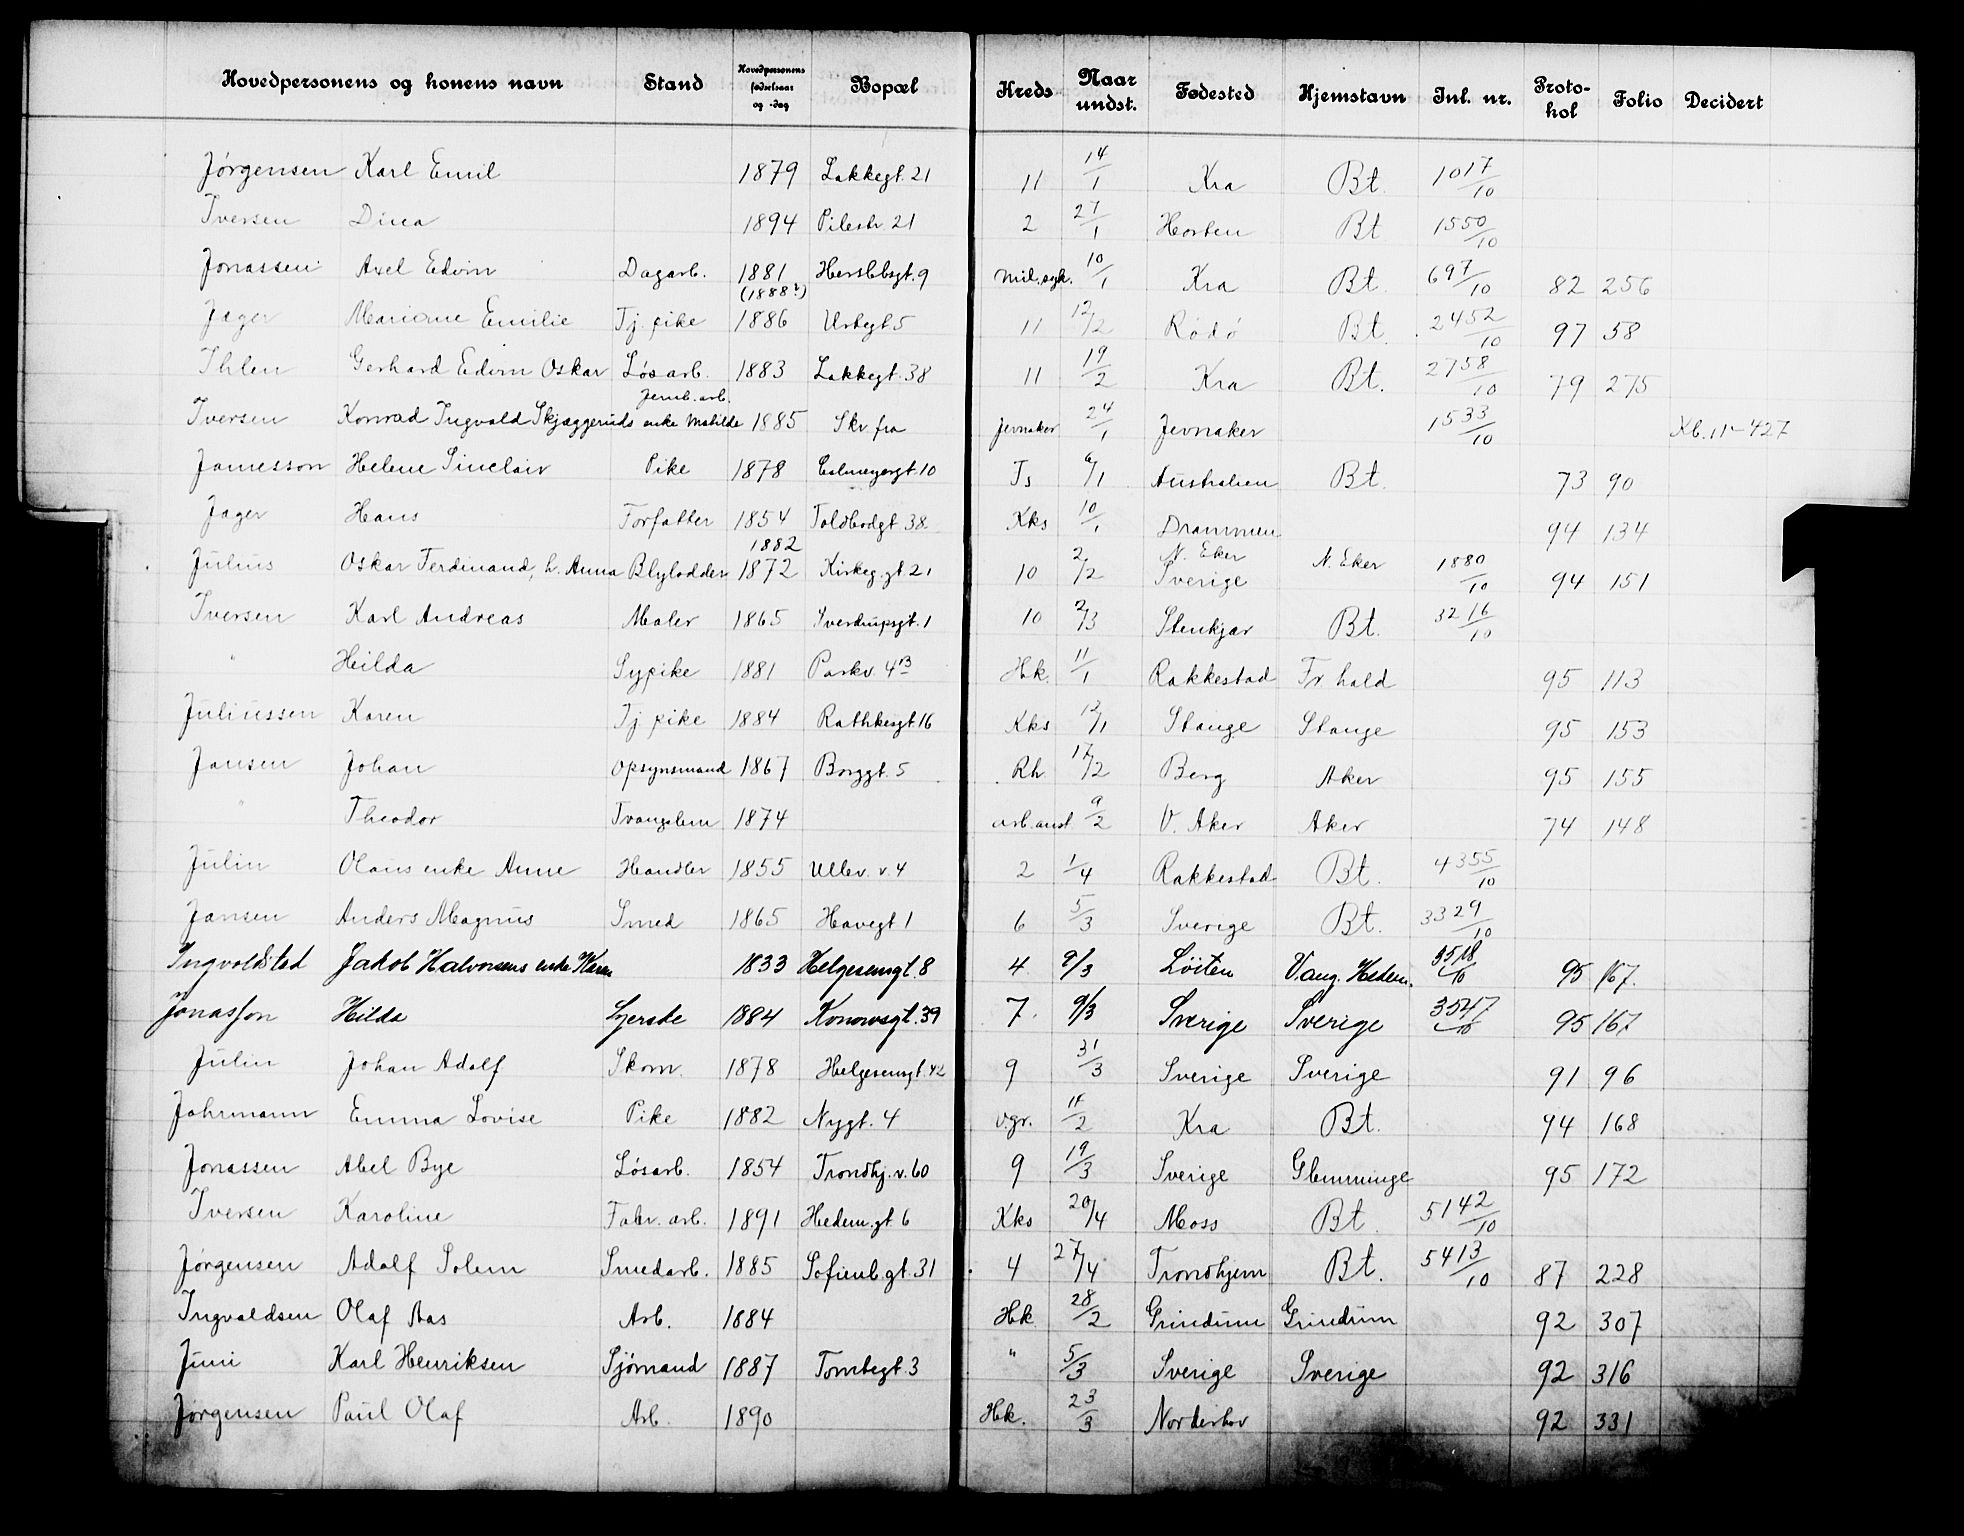 Hovedpersonens og konens navn Stand Hovedpersonens fødselsaar og -dag Bopæl Kreds Naar undst. Fødested Hjemstavn Jnl. nr. Protokol Folio Decidert
Jørgensen Karl Emil 1879 Lakkegt. 21 11 14/1 Kra Bt. 1017/10
Iversen Dina 1894 Pilestr. 21 2 27/1 Horten Bt 1550/10
Jonassen Axel Edvin Dagarb. 1881 (1888?) Herslebsgt. 9 Mil. syk. 10/1 Kra Bt. 697/10 82 256
Jæger Mariane Emilie Tj. pike 1886 Urtegt 5 11 12/2 Rødø Bt. 2452/10 97 58
Ihlen Gerhard Edvin Oskar Løsarb. 1883 Lakkegt. 38 11 19/2 Kra Bt. 2758/10 79 275
Iversen Konrad Ingvald Skjæggeruds enke Matilde Jernb. arb. 1885 Skr fra Jevnaker 24/1 Jevnaker 1533/10 Kb. 11-427
Jamesson Helene Sinclair Pike 1878 Colmeyergt. 10 Ts 6/1 Australien Bt. 73 90
Jæger Hans Forfatter 1854 Toldbodgt 38. Kks 10/1 Drammen 94 134
Julius Oskar Ferdinand, h. Anna Blylodder 1882 1872 Kirkeg. gt. 21 10 2/2 N. Eker Sverige N. Eker 1880/10 94 151
Iversen Karl Andreas Maler 1865 Sverdrupsgt. 1 10 2/3 Stenkjær Bt. 3216/10
" Hilda Sypike 1881 Parkv. 4B Hk. 11/1 Rakkestad Fr hald 95 113
Juliussen Karen Tj pike 1884 Rathkesgt. 16 Kks 12/1 Stange Stange 95 153
Jansen Johan Opsynsmand 1867 Borggt. 5 Rh. 17/2 Berg Aker 95 155
" Theodor Tvangslem 1874 arb. anst 9/2 V. Aker Aker 74 148
Julin Olaus enke Anne Handler 1855 Ullev. v. 4 2 1/4 Rakkestad Bt. 4355/10
Jansen Anders Magnus Smed 1865 Havegt 1 6 5/3 Sverige Bt. 3329/10
Ingvoldstad Jakob Halvorsens enke Karen 1833 Helgesensgt. 8 4 9/3 Löiten Vang. Hedem. 3518/10 95 167.
Jonasson Hilda Syerske 1884 Konowsgt. 39 7. 9/3 Sverige Sverige 3547/10 95 167
Julin Johan Adolf Skom. 1878 Helgesensgt. 42 9 31/3 Sverige Sverige 91 96
Jahrmann Emma Lovise Pike 1882 Nygt. 4 V.gr. 11/2 Kra Bt. 94 168
Jonassen Abel Bye Løsarb. 1854 Trondhj. v. 60 9 19/3 Sverige Glemminge 95 172
Iversen Karoline Fabr. arb. 1891 Hedem. gt. 6 Kks 20/4 Moss Bt. 5142/10
Jørgensen Adolf Solem Smedarb. 1885 Sofienb. gt. 31 4 27/4 Trondhjem Bt. 5413/10 87 228
Ingvaldsen Olaf Aas Arb. 1884 Hk 28/2 Grindum Grindum 92 307
Juni Karl Henriksen Sjömand 1887 Tomtegt. 3 " 5/3 Sverige Sverige 92 316
Jørgensen Paul Olaf Arb. 1890 Hk. 23/3 Norderhov 92 331